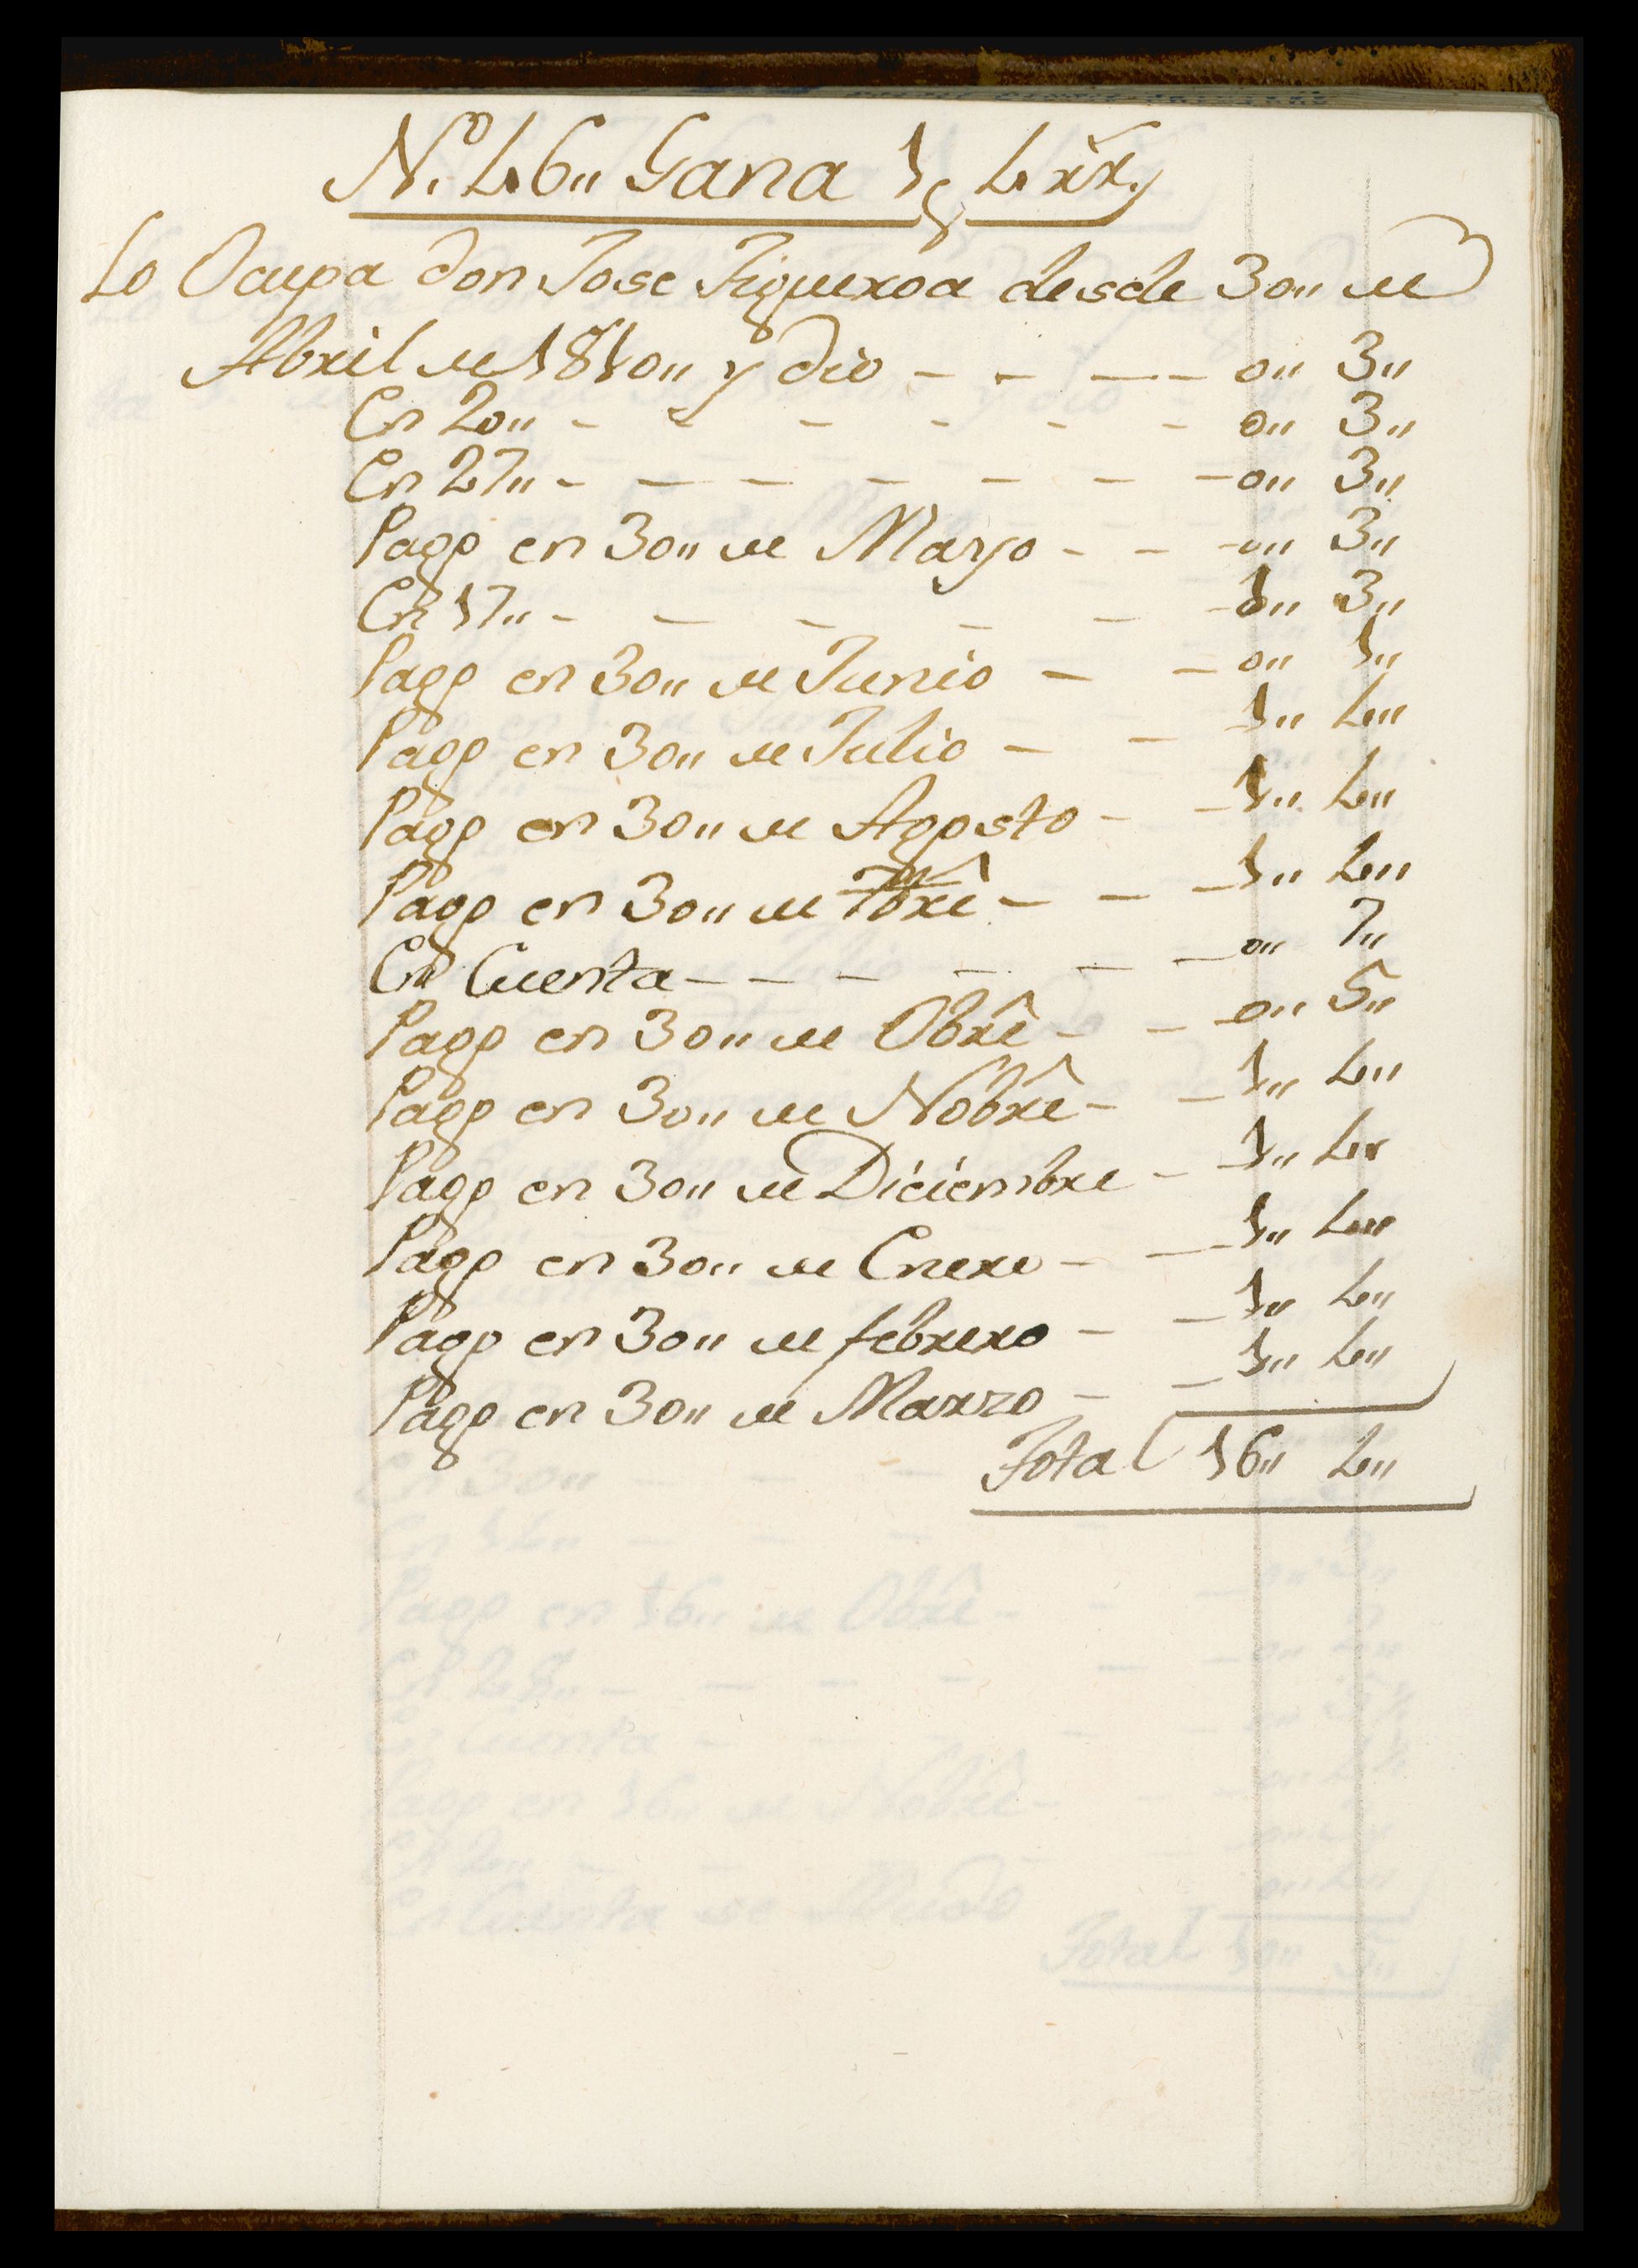 N.º 46,, Gana 1 p 4 rr.s
Lo Ocupa don Jose Figueroa desde 30,, de
Abril de 1810,, y dio - - - - 0,, 3,,
En 20,, - - - - - - 0,, 3,,
En 27,, - - - - - - - 0,, 3,,
Pago en 30,, de Mayo - - - 0,, 3,,
En 17,, - - - - - - 1,, 3,,
Pago en 30,, de Junio - - 0,, 1,,
Pago en 30,, de Julio - - 1,, 4,,
Pago en 30,, de Agosto - - 1,, 4,,
Pago en 30,, de 7bre - - - 1,, 4,,
En Cuenta - - - - - - 0,, 7,,
Pago en 30,, de Obre - - - 0,, 5,,
Pago en 30,, de Nobre - - 1,, 4,,
Pago en 30,, de Diciembre - - 1,, 4,,
Pago en 30,, de Enero - - 1,, 4,,
Pago en 30,, de febrero - - 1,, 4,,
Pago en 30,, de Marzo - - 1,, 4,,
Total 16,, 4,,